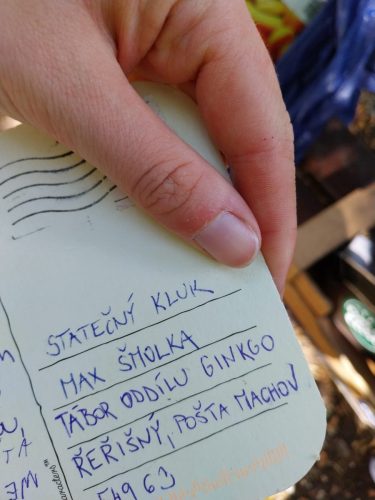 STATEČNÝ KLUK
MAX ŠMOLKA
TÁBOR ODDÍLU GINKGO
ŘEŘIŠNÝ, POŠTA MACHOV
54963